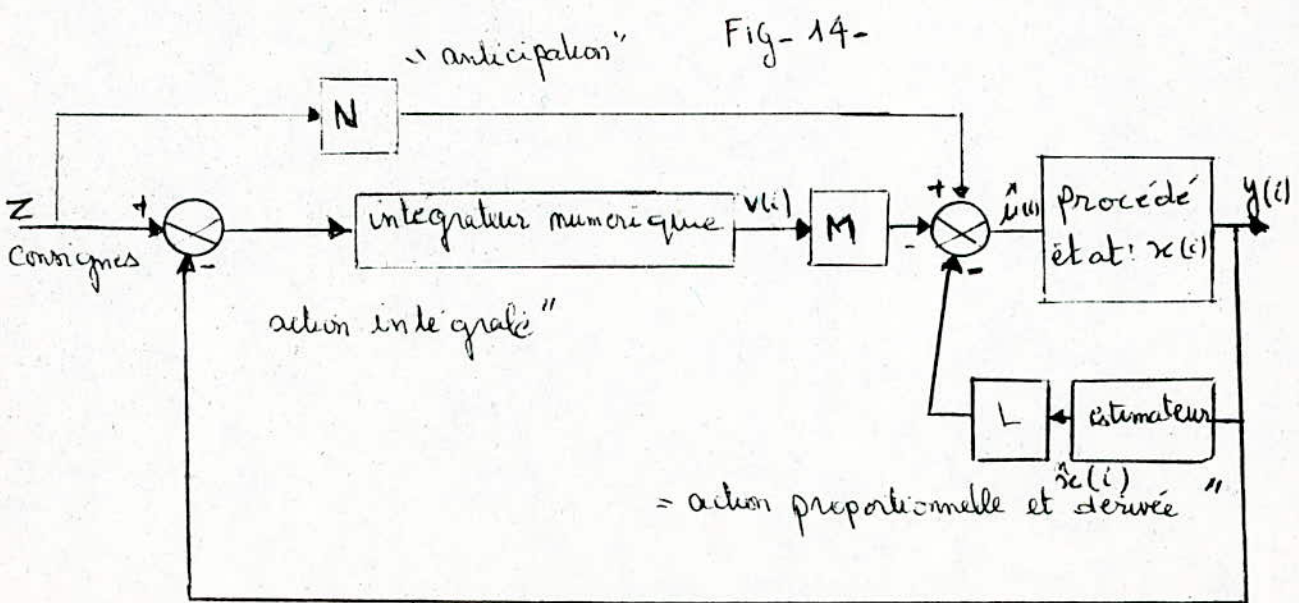 Fig- 14-
" anticipation"
N
Z
+
-
Consignes
intégrateur numérique
v(i)
M
+
-
-
û(i)
procédé
état: x(i)
y(i)
action intégrale"
L
estimateur
x̂(i)
= action proportionnelle et dérivée "